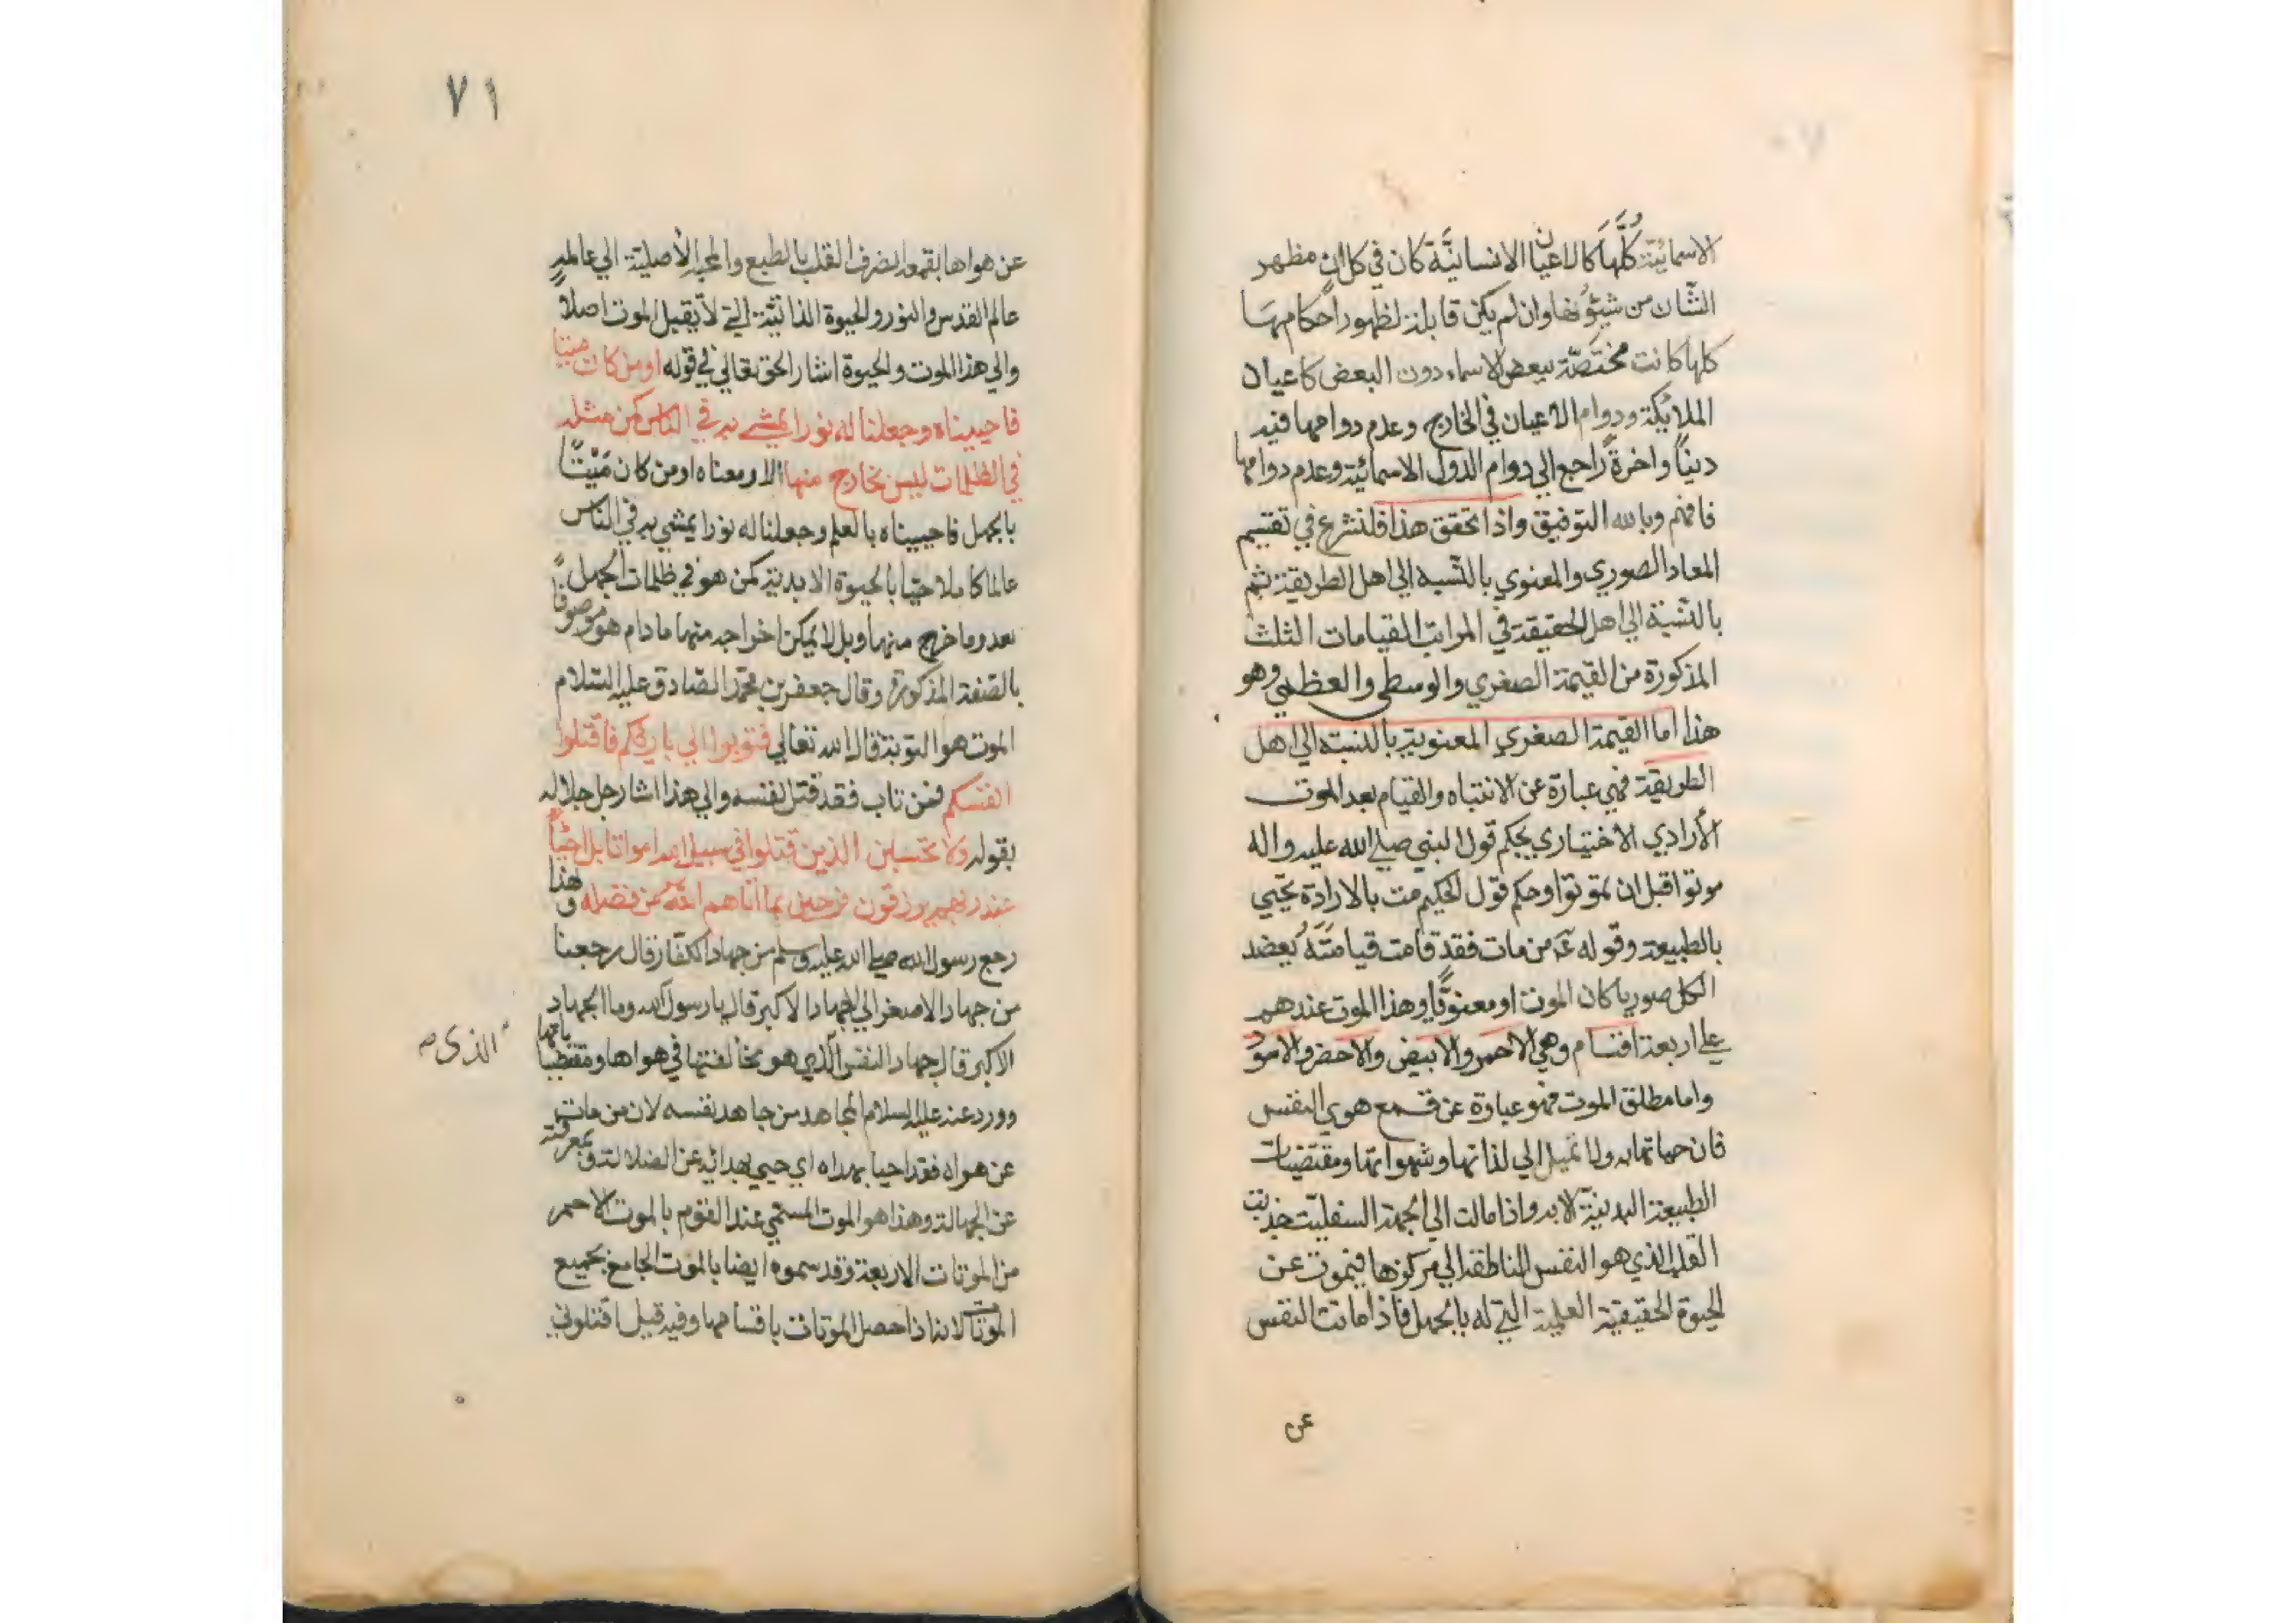 الاسمائيّة كُلَّهَا كالاعيان الانسانيَّة كان في كل ان مظهر
الشّان من شئونها وان لم يكن قابلة لظهور احكامها
كلها كانت مختصّة ببعض الاسماء دون البعض كاعيان
الملائكة ودوام الاعيان في الخارج وعدم دوامها فيه
دينًا واخرةً راجع الي دوام الدول الاسمائية وعدم دوامها
فافهم وبالله التوفيق واذا تحقق هذا فلنشرع في تقسيم
المعاد الصوري والمعنوي بالنّسبه الي اهل الطريقة ثم
بالنّسبة الي اهل الحقيقة في المراتب القيامات الثلث
المذكورة من القيمة الصغري والوسطي والعظمي وهو
هذا اما القيمة الصغري المعنوية بالنسبة الي اهل
الطريقة فهي عبارة عن الانتباه والقيام بعد الموت
الأرادي الاختياري بحكم قول النبي صلي الله عليه واله
موتوا قبل ان تموتوا وحكم قول الحكيم مت بالارادة تحيي
بالطبيعة وقوله عۤ من مات فقد قامت قيامَتَهُ بعضد
الكل صوريا كان الموت او معنويًّا وهذا الموت عندهم
علي اربعة اقسام وهي الاحمر والابيض والاخضر والاسود
واما مطلق الموت فهو عبارة عن قمع هوي النفس
فان حياتها به ولا تميل الي لذاتها وشهواتها ومقتضيات
الطبيعة البدنيّة الا به واذا مالت الي الجهة السفليّت جذبت
القلب الذي هو النفس الناطقة الي مركزها فيموت عن
الحيوة الحقيقية العلمية التي له بالجهل فاذا ماتت النفس
عن
٧١
عن هواها بقمعه انصرف القلب بالطبع والمحبة الأصلية الي عالمه
عالم القدس والنور والحيوة الذاتيّة التي لا يقبل الموت اصلاً
والي هذا الموت والحيوة اشار الحق تعالي في قوله اومن كان ميتا
فاحييناه وجعلنا له نورا يمشي به في الناس كمن مثله
في الظلمات ليس بخارج منها الاۤ ومعناه اومن كان مَيّتًا
بالجهل فاحييناه بالعلم وجعلنا له نورا يمشي به في النّاس
عالما كاملا حيّا بالحيوة الابدية كمن هو في ظلمات الجهل
بعد وما خرج منها وبل لا يمكن اخراجه منها ما دام هو موصوفًا
بالصّفة المذكورة وقال جعفر بن محمّد الصّادق عليه السّلام
الموت هو التوبة قال الله تعالي فتوبوا الي بارئكم فاقتلوا
انفسكم فمن تاب فقد قتل نفسه والي هذا اشار جل جلاله
بقوله ولا تحسبن الذين قتلوا في سبيل الله امواتا بل احيّاً
عند ربهم يرزقون فرحين بما اتاهم الله من فضله ولهذا
رجع رسول الله صلي الله عليه وسلم من جهاد الكفّار قال رجعنا
من جهاد الاصغر الي الجهاد الاكبر قال يا رسول الله وما الجهاد
الاكبر قال جهاد النفس الّذي هو مخالفتها في هواها ومقتضياتها
الذى
وورد عنه عليه السلام المجاهد من جاهد نفسه لان من مات
عن هواه فقد احيا بهداه اي حيي بهدائه عن الضلالة وبمعرفته
عن الجهالة وهذا هو الموت المسّمي عند القوم بالموت الاحمر
من الموتات الاربعة وقد سموه ايضا بالموت الجامع بجميع
الموتات لانه اذا حصل الموتات باقسامها وفيه قيل اقتلوني